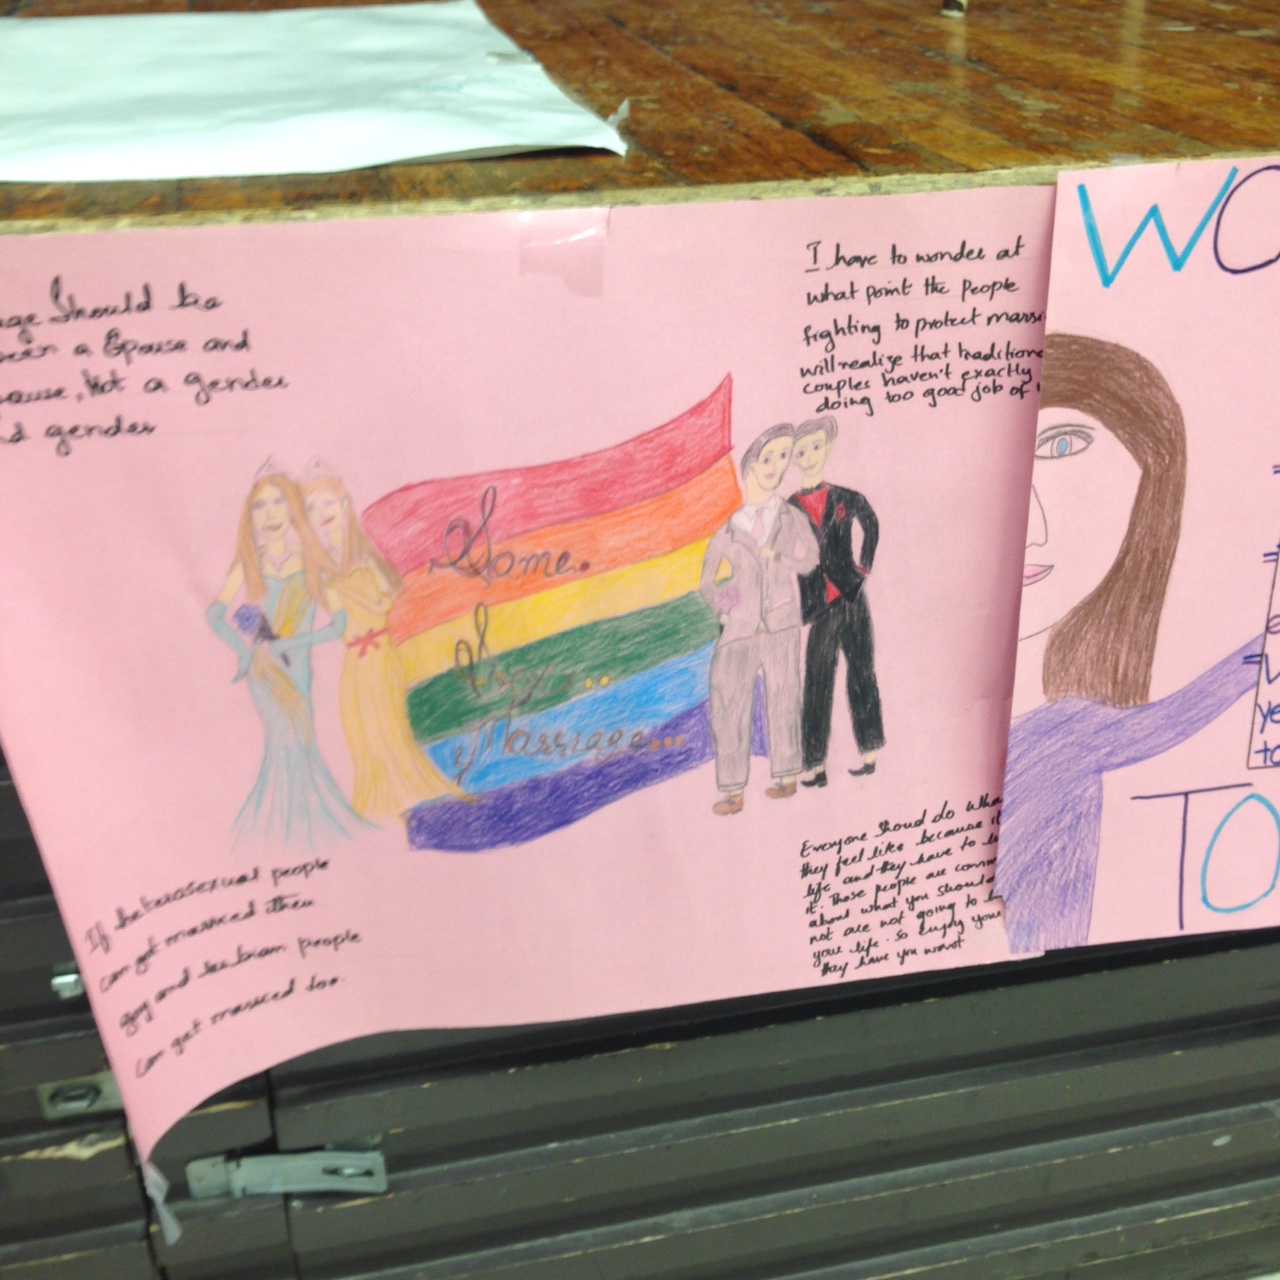 age should be
een a Spouse and
ouse, Not a gender
d gender
I have to wonder at
what point the people
fighting to protect marri
will realize that traditiona
couples haven't exactly
doing too good job of
Same.
Sex...
Marriage...
If heterosexual people
can get married then
gay and lesbian people
can get married too.
Everyone shoud do wha
they feel like because it
life and they have to li
it. Those people are comm
about what you should
not are not going to
your life. so enjoy your
they have you want
WO
TO